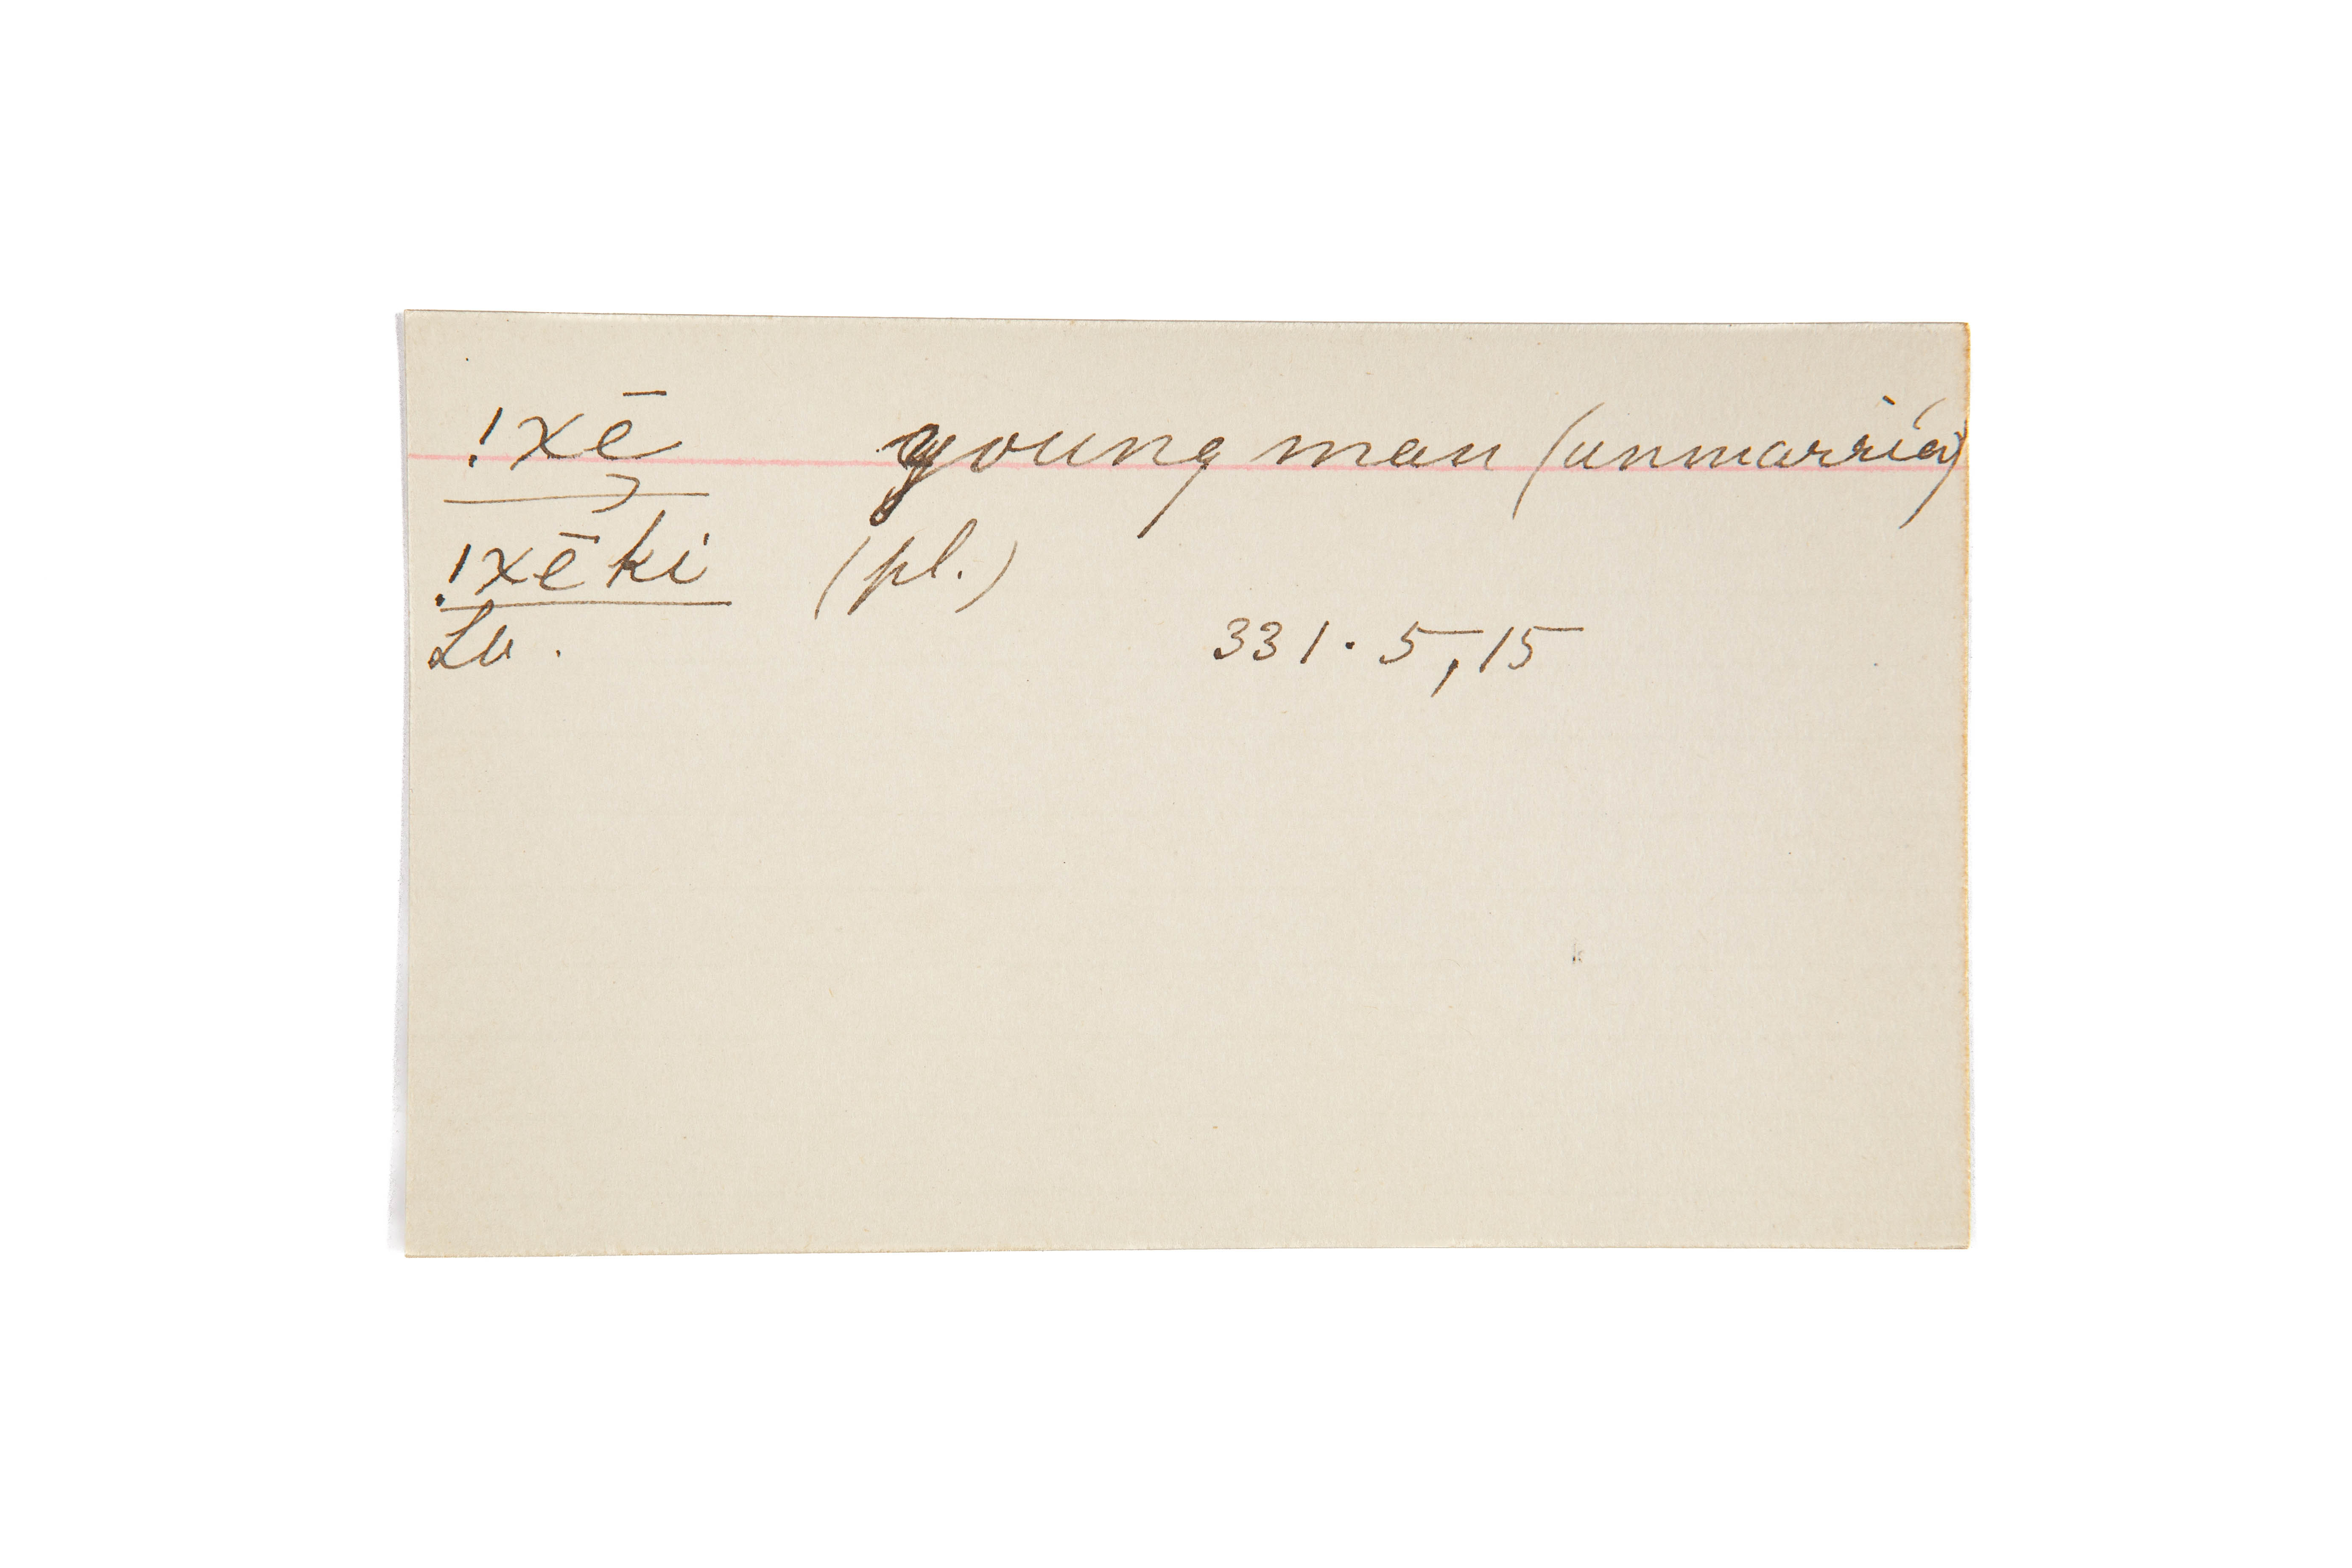 !xē young man (unmarried)
!xēki (pl.)
Lu. 331. 5, 15